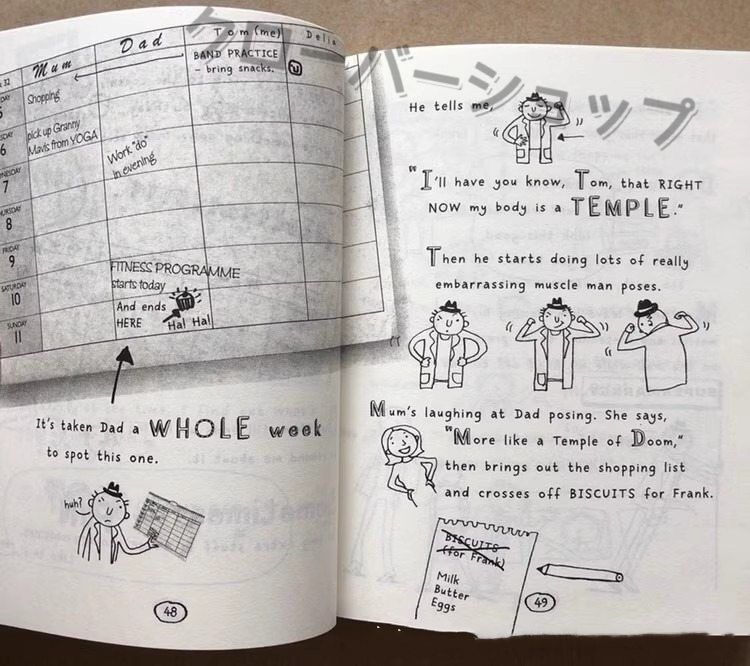 クローバーショップ
Mum
Dad
Tom (me)
Delia
32
BAND PRACTICE
- bring snacks.
Shopping
6
pick up Granny
Mavis from YOGA
Work "do"
in evening
7
8
FRIDAY
9
SATURDAY
10
SUNDAY
11
FITNESS PROGRAMME
starts today
And ends
HERE
Ha! Ha!
It's taken Dad a WHOLE week
to spot this one.
huh?
48
He tells me,
"I'll have you know, Tom, that RIGHT
NOW my body is a TEMPLE."
Then he starts doing lots of really
embarrassing muscle man poses.
Mum's laughing at Dad posing. She says,
"More like a Temple of Doom,"
then brings out the shopping list
and crosses off BISCUITS for Frank.
BISCUITS
(for Frank)
Milk
Butter
Eggs
49